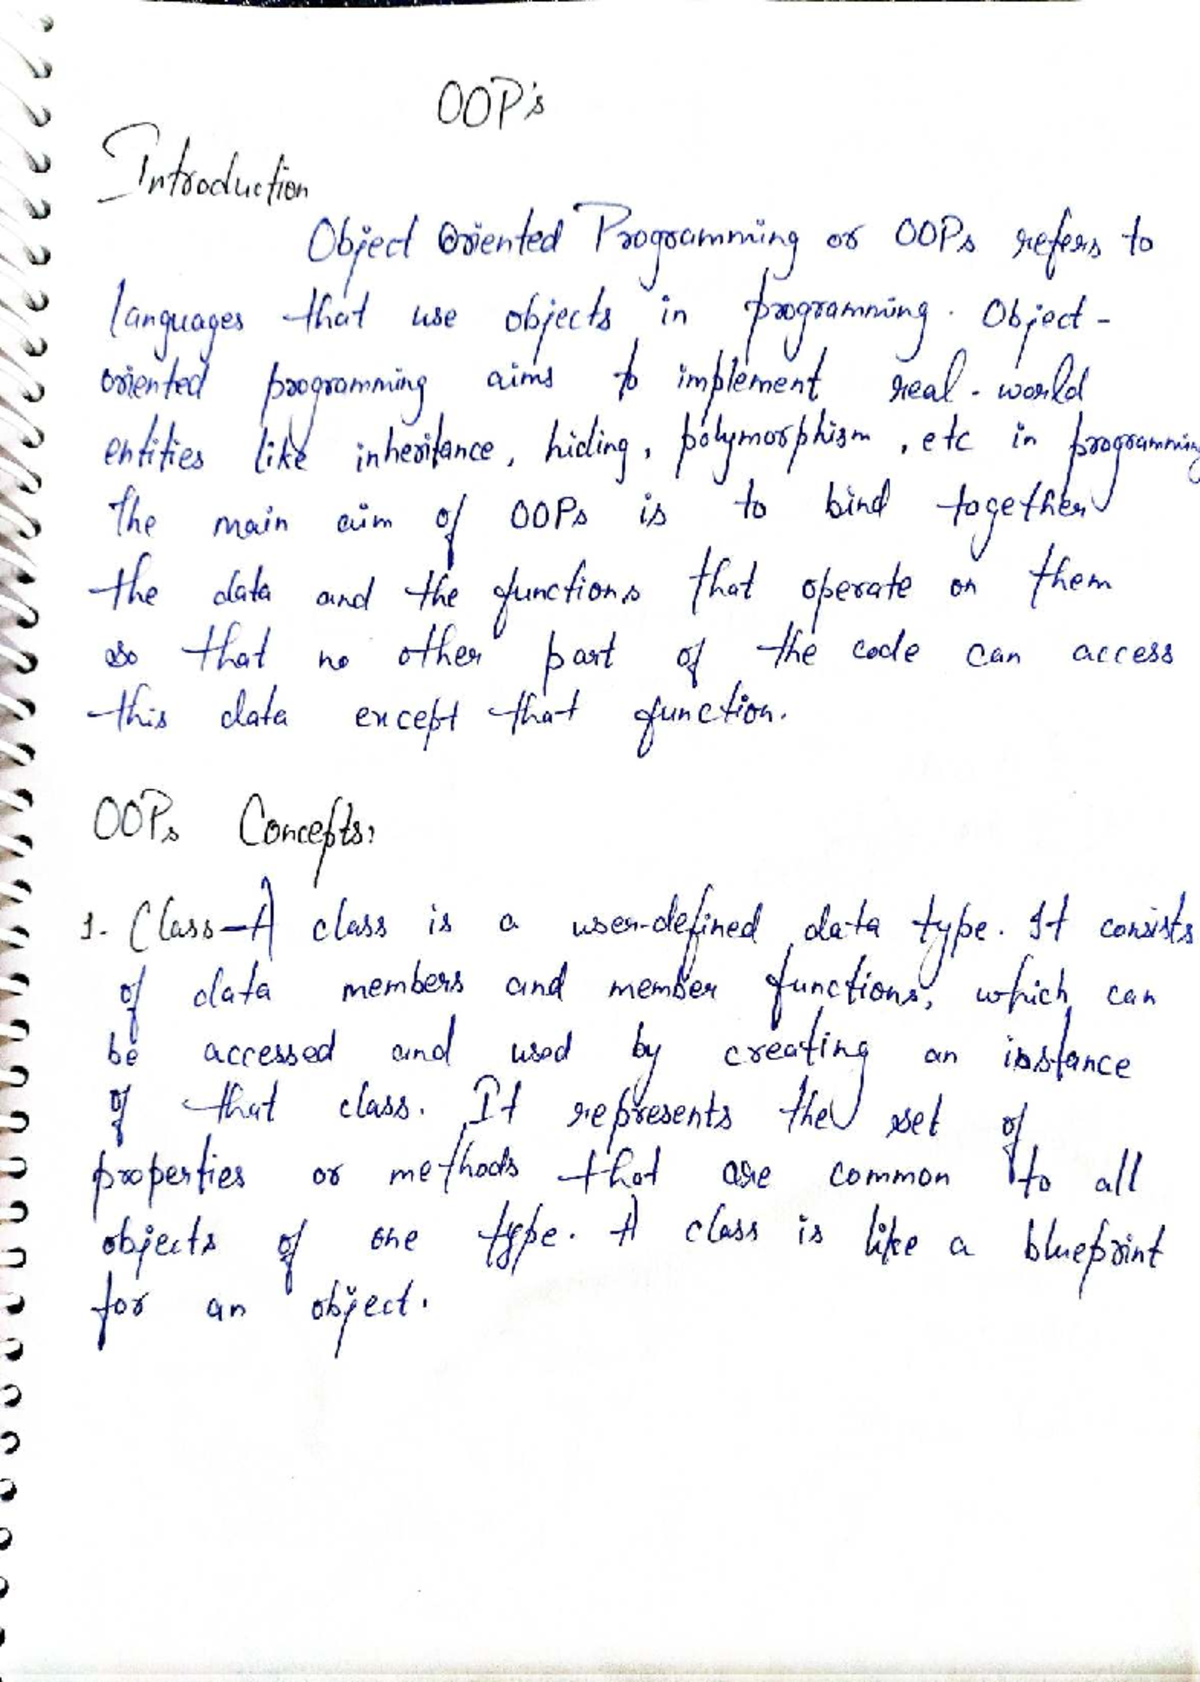 OOP's
Introduction
Object Oriented Programming or OOPs refers to
languages that use objects in programming. Object-
oriented programming aims to implement real-world
entities like inheritance, hiding, polymorphism, etc in programming
The main aim of OOPs is to bind together
the data and the functions that operate on them
so that no other part of the code can access
this data except that function.
OOPs Concepts:
1. Class-A class is a user-defined data type. It consists
of data members and member functions, which can
be accessed and used by creating an instance
of that class. It represents the set of
properties or methods that are common to all
objects of one type. A class is like a blueprint
for an object.